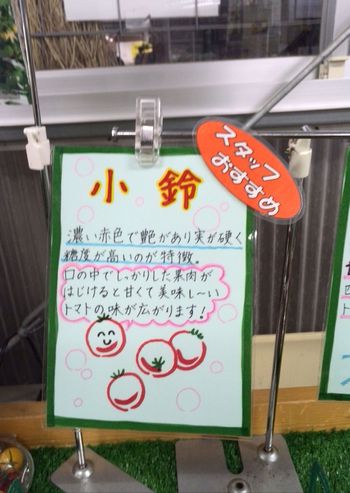 スタッフ
おすすめ
小鈴
濃い赤色で艶があり実が硬く
糖度が高いのが特徴。
口の中でしっかりした果肉が
はじけると甘くて美味し～い
トマトの味が広がります!